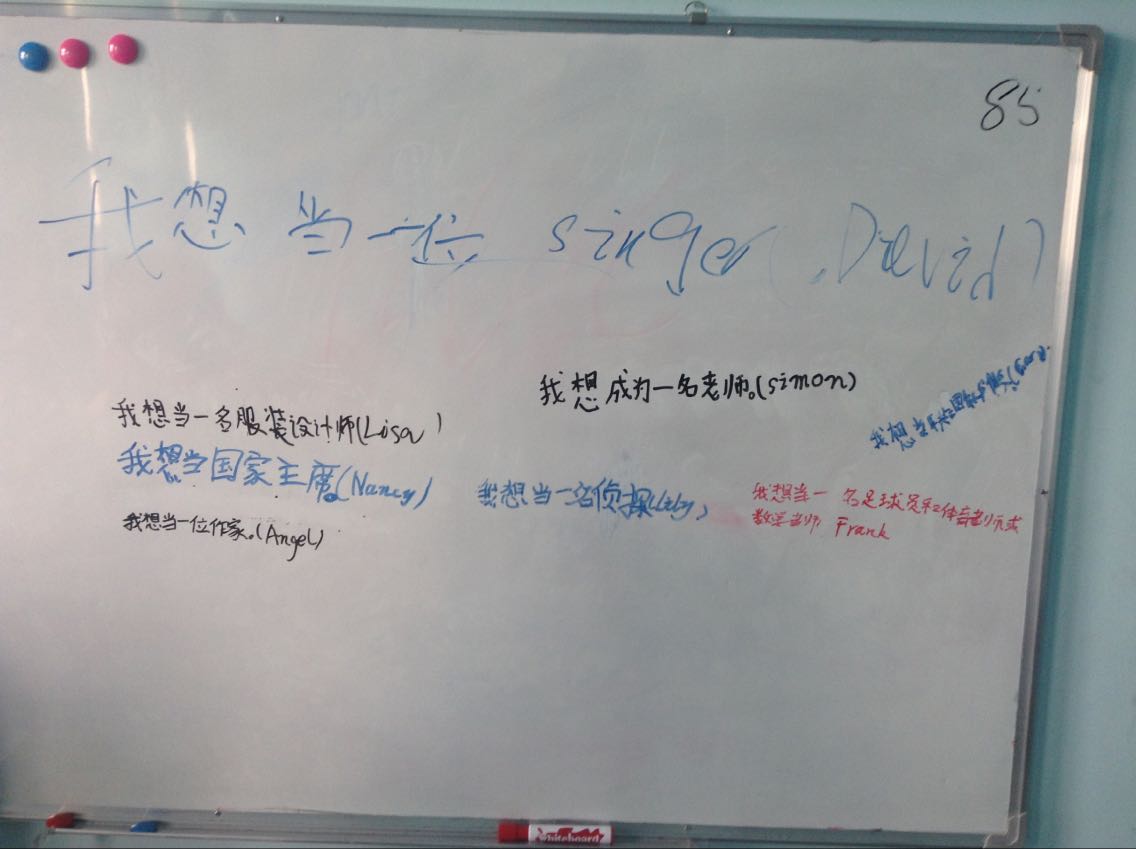 85
我想当一位 singer(.David)
我想成为一名老师。(simon)
我想当
我想当一名服装设计师(Lisa)
我想当国家主席。(Nancy)
我想当一名侦探(Lily)
我想当一名足球员和体育老师或
数学老师 Frank
我想当一位作家。(Angel)
Whiteboard